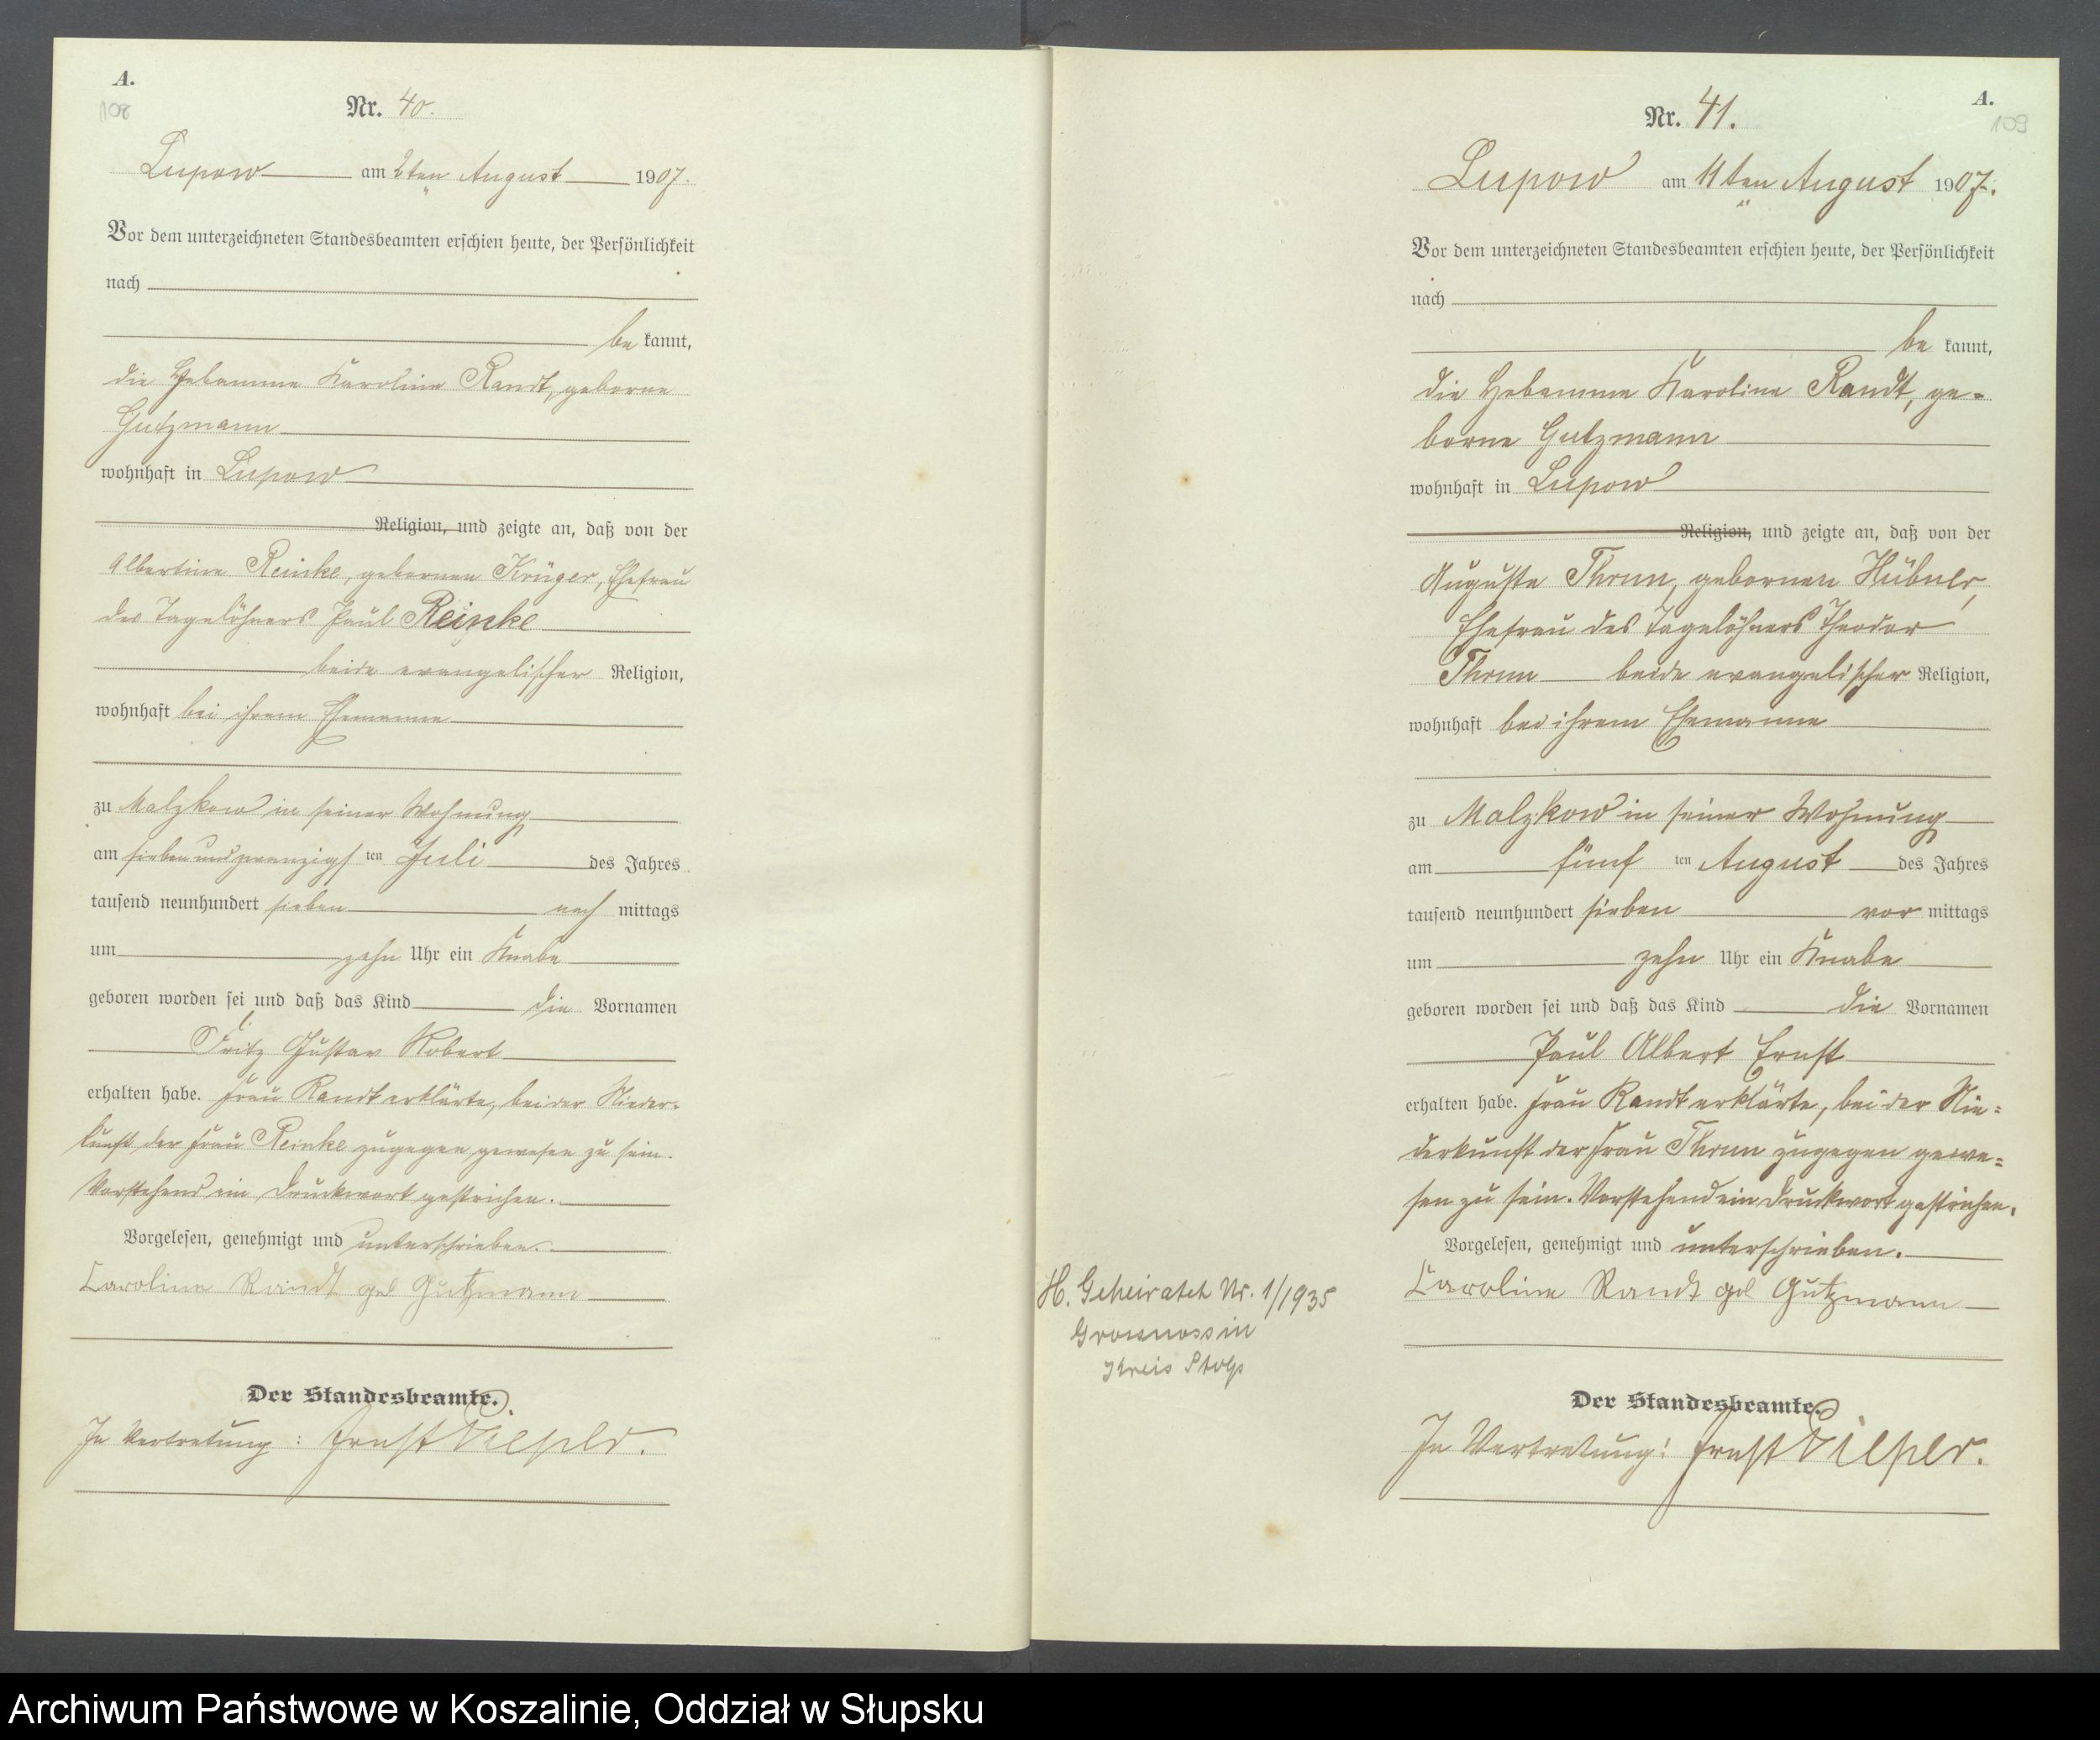 A.
108
Nr. 40.
Lupow am 2ten August 1907.
Vor dem unterzeichneten Standesbeamten erschien heute, der Persönlichkeit
nach
be kannt,
die Hebamme Karoline Randt, geborne
Gutzmann
wohnhaft in Lupow
Religion, und zeigte an, daß von der
Albertine Reinke, gebornen Krüger, Ehefrau
des Tagelöhners Paul Reinke
beide evangelischer Religion,
wohnhaft bei ihrem Ehemanne
zu Malzkow in seiner Wohnung
am sieben und zwanzigs ten Juli des Jahres
tausend neunhundert sieben nach mittags
um zehn Uhr ein Knabe
geboren worden sei und daß das Kind die Vornamen
Fritz Gustav Robert
erhalten habe. Frau Randt erklärte, bei der Nieder-
kunft der Frau Reinke zugegen gewesen zu sein.
Vorstehend ein Druckwort gestrichen.
Vorgelesen, genehmigt und unterschrieben.
Caroline Randt geb Gutzmann
Der Standesbeamte.
In Vertretung: Ernst Pieper.
A.
109
Nr. 41.
Lupow am 11ten August 1907.
Vor dem unterzeichneten Standesbeamten erschien heute, der Persönlichkeit
nach
be kannt,
die Hebamme Karoline Randt, ge-
borne Gutzmann
wohnhaft in Lupow
Religion, und zeigte an, daß von der
Auguste Thrun, gebornen Hübner,
Ehefrau des Tagelöhners Theodor
Thrun beide evangelischer Religion,
wohnhaft bei ihrem Ehemanne
zu Malzkow in seiner Wohnung
am fünf ten August des Jahres
tausend neunhundert sieben vor mittags
um zehn Uhr ein Knabe
geboren worden sei und daß das Kind die Vornamen
Paul Albert Ernst
erhalten habe. Frau Randt erklärte, bei der Nie-
derkunft der Frau Thrun zugegen gewe-
sen zu sein. Vorstehend ein Druckwort gestrichen.
Vorgelesen, genehmigt und unterschrieben.
Caroline Randt geb Gutzmann
H. Geheiratet Nr. 1/1935
Grossnossin
Kreis Stolp
Der Standesbeamte.
In Vertretung: Ernst Pieper.
Archiwum Państwowe w Koszalinie, Oddział w Słupsku